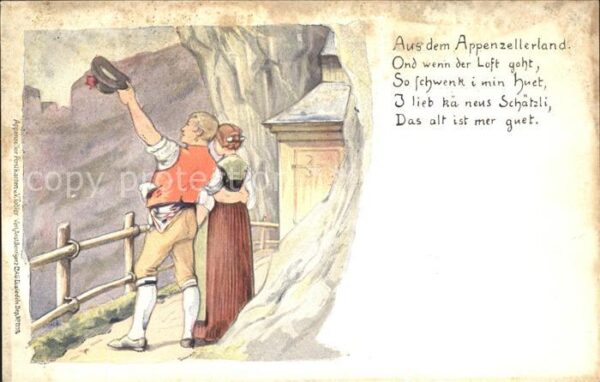 Aus dem Appenzellerland.
Ond wenn der Loft goht,
So schwenk i min Huet,
I lieb kä neus Schätzli,
Das alt ist mer guet.
copyright
Appenzeller Postkarten